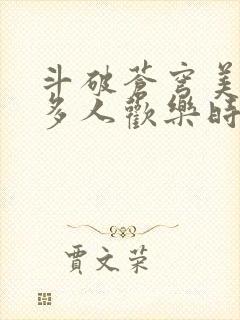 斗破苍穹美
多人歡樂時
賈文荣